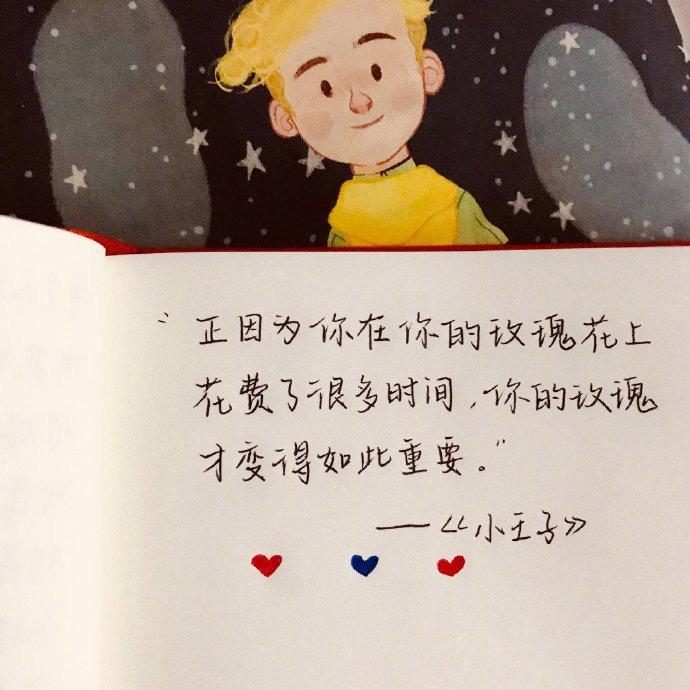 "正因为你在你的玫瑰花上
花费了很多时间,你的玫瑰
才变得如此重要。"
——《小王子》